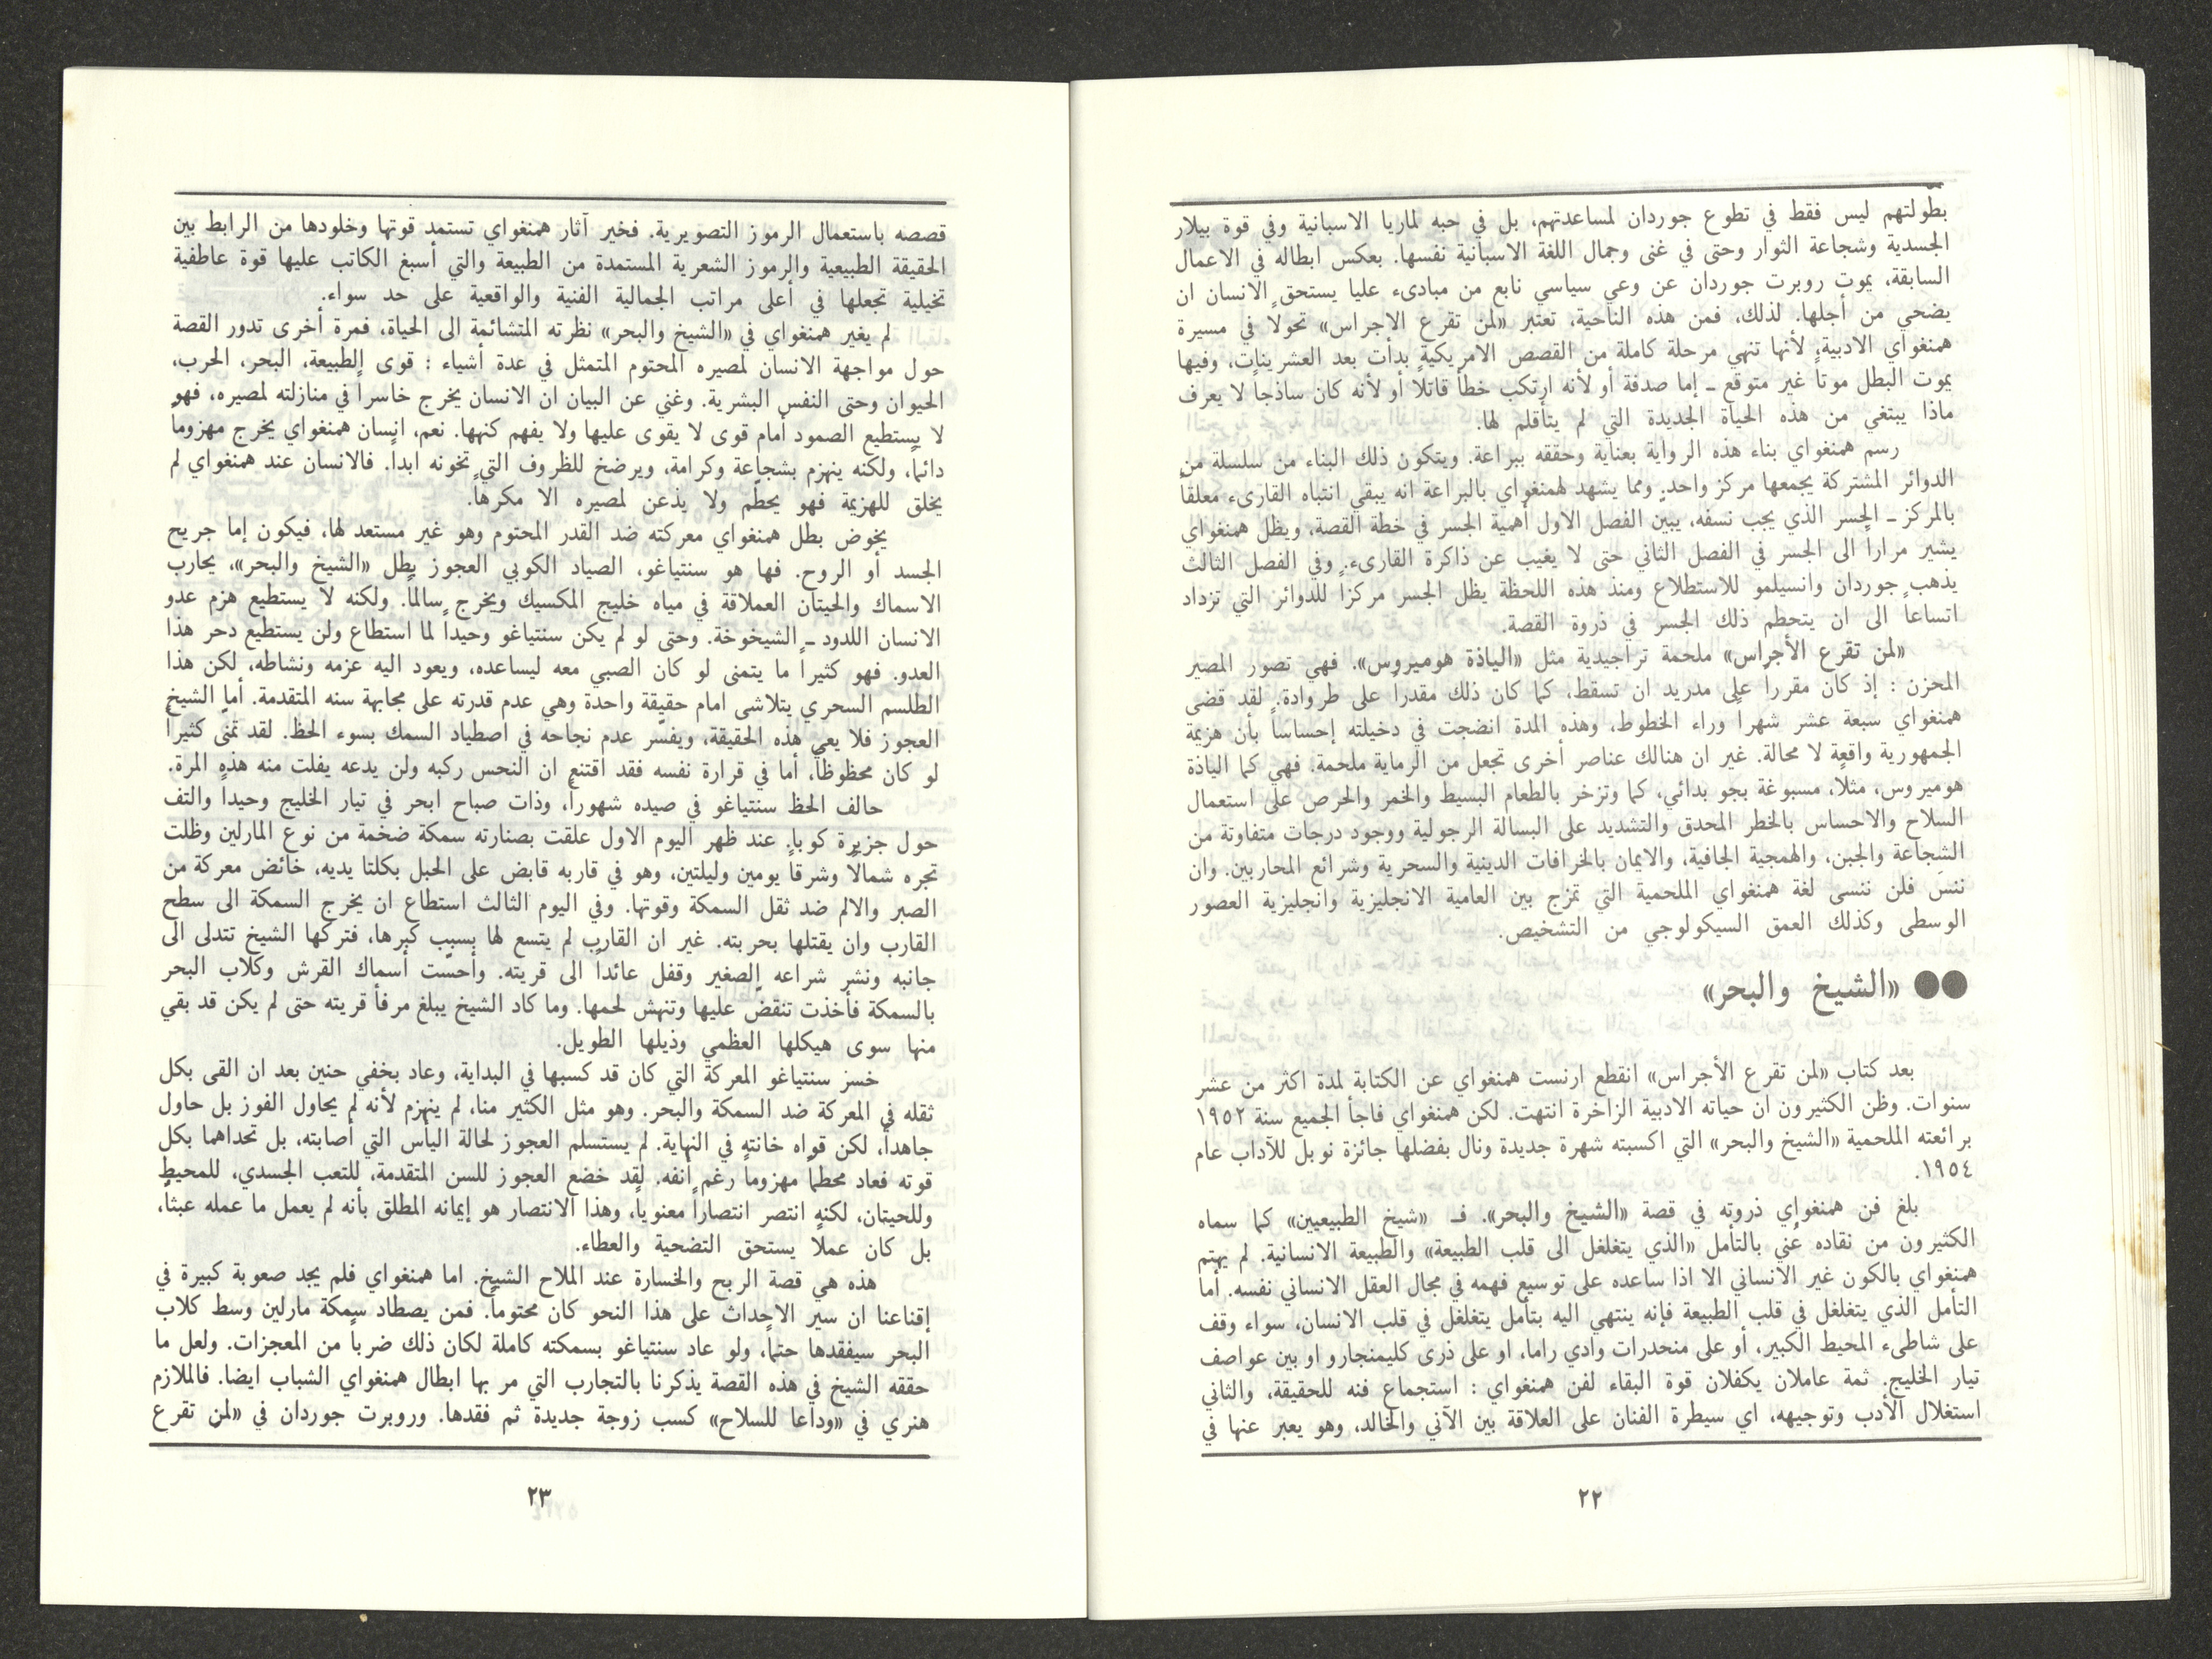 بطولتهم ليس فقط في تطوع جوردان لمساعدتهم، بل في حبه لماريا الاسبانية وفي قوة بيلار
الجسدية وشجاعة الثوار وحتى في غنى وجمال اللغة الاسبانية نفسها. بعكس ابطاله في الاعمال
السابقة، يموت روبرت جوردان عن وعي سياسي نابع من مبادىء عليا يستحق الانسان ان
يضحي من أجلها. لذلك، فمن هذه الناحية، تعتبر «لمن تقرع الاجراس» تحولاً في مسيرة
همنغواي الادبية، لأنها تنهي مرحلة كاملة من القصص الامريكية بدأت بعد العشرينات، وفيها
يموت البطل موتاً غير متوقع ـ إما صدفة أو لأنه ارتكب خطأ قاتلاً أو لأنه كان ساذجاً لا يعرف
ماذا يبتغي من هذه الحياة الجديدة التي لم يتأقلم لها.
رسم همنغواي بناء هذه الرواية بعناية وحققه ببراعة. ويتكون ذلك البناء من سلسلة من
الدوائر المشتركة يجمعها مركز واحد. ومما يشهد لهمنغواي بالبراعة انه يبقي انتباه القارىء معلقاً
بالمركز ـ الجسر الذي يجب نسفه، يبين الفصل الاول أهمية الجسر في خطة القصة، ويظل همنغواي
يشير مراراً الى الجسر في الفصل الثاني حتى لا يغيب عن ذاكرة القارىء. وفي الفصل الثالث
يذهب جوردان وانسيلمو للاستطلاع ومنذ هذه اللحظة يظل الجسر مركزاً للدوائر التي تزداد
اتساعاً الى ان يتحطم ذلك الجسر في ذروة القصة.
«لمن تقرع الأجراس» ملحمة تراجيدية مثل «الياذة هوميروس». فهي تصور المصير
المحزن : إذ كان مقرراً على مدريد ان تسقط، كما كان ذلك مقدراً على طروادة. لقد قضى
همنغواي سبعة عشر شهراً وراء الخطوط، وهذه المدة انضجت في دخيلته إحساساً بأن هزيمة
الجمهورية واقعة لا محالة. غير ان هنالك عناصر أخرى تجعل من الرماية ملحمة. فهي كما الياذة
هوميروس، مثلاً، مسبوغة بجو بدائي، كما وتزخر بالطعام البسيط والخمر والحرص على استعمال
السلاح والاحساس بالخطر المحدق والتشديد على البسالة الرجولية ووجود درجات متفاوتة من
الشجاعة والجبن، والهمجية الجافية، والايمان بالخرافات الدينية والسحرية وشرائع المحاربين. وان
ننسَ فلن ننسى لغة همنغواي الملحمية التي تمزج بين العامية الانجليزية وانجليزية العصور
الوسطى وكذلك العمق السيكولوجي من التشخيص.
●● «الشيخ والبحر»
بعد كتاب «لمن تقرع الأجراس» انقطع ارنست همنغواي عن الكتابة لمدة اكثر من عشر
سنوات. وظن الكثيرون ان حياته الادبية الزاخرة انتهت. لكن همنغواي فاجأ الجميع سنة ١٩٥٢
برائعته الملحمية «الشيخ والبحر» التي اكسبته شهرة جديدة ونال بفضلها جائزة نوبل للآداب عام
١٩٥٤.
بلغ فن همنغواي ذروته في قصة «الشيخ والبحر». فـ «شيخ الطبيعيين» كما سماه
الكثيرون من نقاده عُني بالتأمل «الذي يتغلغل الى قلب الطبيعة» والطبيعة الانسانية. لم يهتم
همنغواي بالكون غير الانساني الا اذا ساعده على توسيع فهمه في مجال العقل الانساني نفسه. أما
التأمل الذي يتغلغل في قلب الطبيعة فإنه ينتهي اليه بتأمل يتغلغل في قلب الانسان، سواء وقف
على شاطىء المحيط الكبير، أو على منحدرات وادي راما، او على ذرى كليمنجارو او بين عواصف
تيار الخليج. ثمة عاملان يكفلان قوة البقاء لفن همنغواي : استجماع فنه للحقيقة، والثاني
استغلال الأدب وتوجيهه، اي سيطرة الفنان على العلاقة بين الآني والخالد، وهو يعبر عنها في
٢٢
قصصه باستعمال الرموز التصويرية. فخير آثار همنغواي تستمد قوتها وخلودها من الرابط بين
الحقيقة الطبيعية والرموز الشعرية المستمدة من الطبيعة والتي أسبغ الكاتب عليها قوة عاطفية
تخيلية تجعلها في أعلى مراتب الجمالية الفنية والواقعية على حد سواء.
لم يغير همنغواي في «الشيخ والبحر» نظرته المتشائمة الى الحياة، فمرة أخرى تدور القصة
حول مواجهة الانسان لمصيره المحتوم المتمثل في عدة أشياء : قوى الطبيعة، البحر، الحرب،
الحيوان وحتى النفس البشرية. وغني عن البيان ان الانسان يخرج خاسراً في منازلته لمصيره، فهو
لا يستطيع الصمود أمام قوى لا يقوى عليها ولا يفهم كنهها. نعم، انسان همنغواي يخرج مهزوماً
دائما، ولكنه ينهزم بشجاعة وكرامة، ويرضخ للظروف التي تخونه ابداً. فالانسان عند همنغواي لم
يخلق للهزيمة فهو يحطّم ولا يذعن لمصيره الا مكرهاً.
يخوض بطل همنغواي معركته ضد القدر المحتوم وهو غير مستعد لها، فيكون إما جريح
الجسد أو الروح. فها هو سنتياغو، الصياد الكوبي العجوز بطل «الشيخ والبحر»، يحارب
الاسماك والحيتان العملاقة في مياه خليج المكسيك ويخرج سالماً. ولكنه لا يستطيع هزم عدو
الانسان اللدود ـ الشيخوخة. وحتى لو لم يكن سنتياغو وحيداً لما استطاع ولن يستطيع دحر هذا
العدو. فهو كثيراً ما يتمنى لو كان الصبي معه ليساعده، ويعود اليه عزمه ونشاطه، لكن هذا
الطلسم السحري يتلاشى امام حقيقة واحدة وهي عدم قدرته على مجابهة سنه المتقدمة. أما الشيخ
العجوز فلا يعي هذه الحقيقة، ويفسر عدم نجاحه في اصطياد السمك بسوء الحظ. لقد تمنى كثيراً
لو كان محظوظاً، أما في قرارة نفسه فقد اقتنع ان النحس ركبه ولن يدعه يفلت منه هذه المرة.
حالف الحظ سنتياغو في صيده شهوراً، وذات صباح ابحر في تيار الخليج وحيداً والتف
حول جزيرة كوبا. عند ظهر اليوم الاول علقت بصنارته سمكة ضخمة من نوع المارلين وظلت
تجره شمالاً وشرقاً يومين وليلتين، وهو في قاربه قابض على الحبل بكلتا يديه، خائض معركة من
الصبر والالم ضد ثقل السمكة وقوتها. وفي اليوم الثالث استطاع ان يخرج السمكة الى سطح
القارب وان يقتلها بحربته. غير ان القارب لم يتسع لها بسبب كبرها، فتركها الشيخ تتدلى الى
جانبه ونشر شراعه الصغير وقفل عائداً الى قريته. وأحسّت أسماك القرش وكلاب البحر
بالسمكة فأخذت تنقضّ عليها وتنهش لحمها. وما كاد الشيخ يبلغ مرفأ قريته حتى لم يكن قد بقي
منها سوى هيكلها العظمي وذيلها الطويل.
خسر سنتياغو المعركة التي كان قد كسبها في البداية، وعاد بخفي حنين بعد ان القى بكل
ثقله في المعركة ضد السمكة والبحر. وهو مثل الكثير منا، لم ينهزم لأنه لم يحاول الفوز بل حاول
جاهداً، لكن قواه خانته في النهاية. لم يستسلم العجوز لحالة اليأس التي أصابته، بل تحداهما بكل
قوته فعاد محطماً مهزوماً رغم أنفه. لقد خضع العجوز للسن المتقدمة، للتعب الجسدي، للمحيط
وللحيتان، لكنه انتصر انتصاراً معنوياً، وهذا الانتصار هو إيمانه المطلق بأنه لم يعمل ما عمله عبثاً،
بل كان عملا يستحق التضحية والعطاء.
هذه هي قصة الربح والخسارة عند الملاح الشيخ. اما همنغواي فلم يجد صعوبة كبيرة في
إقناعنا ان سير الاحداث على هذا النحو كان محتوماً. فمن يصطاد سمكة مارلين وسط كلاب
البحر سيفقدها حتماً، ولو عاد سنتياغو بسمكته كاملة لكان ذلك ضرباً من المعجزات. ولعل ما
حققه الشيخ في هذه القصة يذكرنا بالتجارب التي مر بها ابطال همنغواي الشباب ايضا. فالملازم
هنري في «وداعا للسلاح» كسب زوجة جديدة ثم فقدها. وروبرت جوردان في «لمن تقرع
٢٣